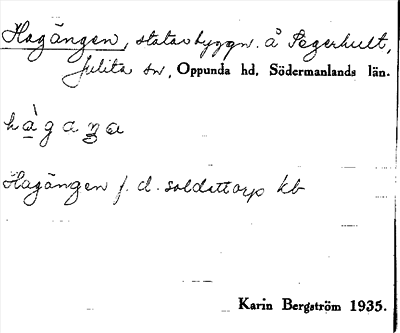 Hagängen, statarbyggn. å Segerhult,
Julita sn, Oppunda hd, Södermanlands län.
hàgaŋa
Hagängen f. d. soldattorp kb
Karin Bergström 1935.